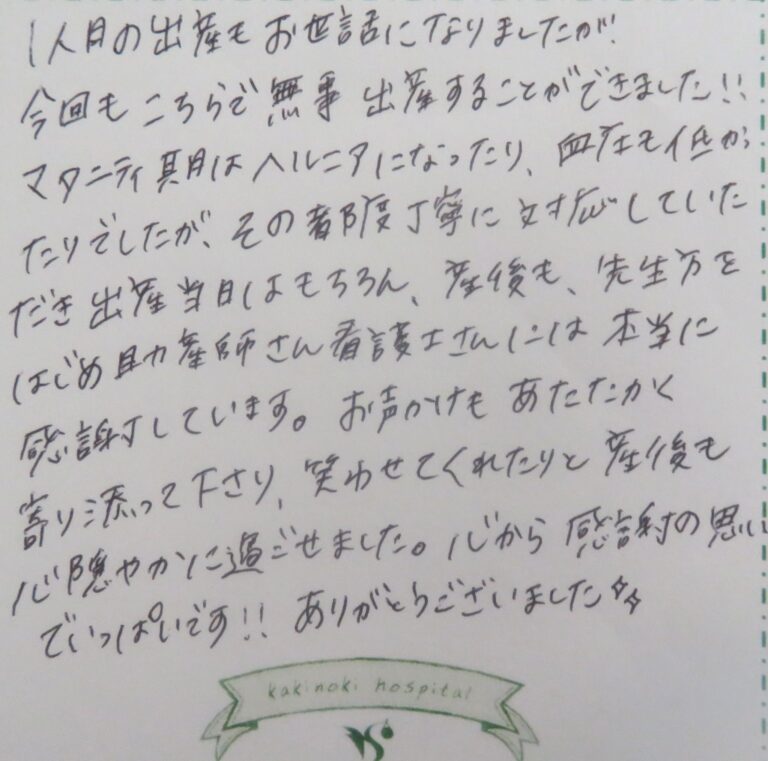 1人目の出産もお世話になりましたが、
今回もこちらで無事 出産することができました!!
マタニティ期はヘルニアになったり、血圧も低か
たりでしたが、その都度丁寧に対応していた
だき出産当日はもちろん、産後も、先生方を
はじめ助産師さん看護士さんには本当に
感謝しています。お声かけもあたたかく
寄り添って下さり、笑わせてくれたりと産後も
心穏やかに過ごせました。心から感謝の思い
でいっぱいです!! ありがとうございました✨
kakinoki hospital